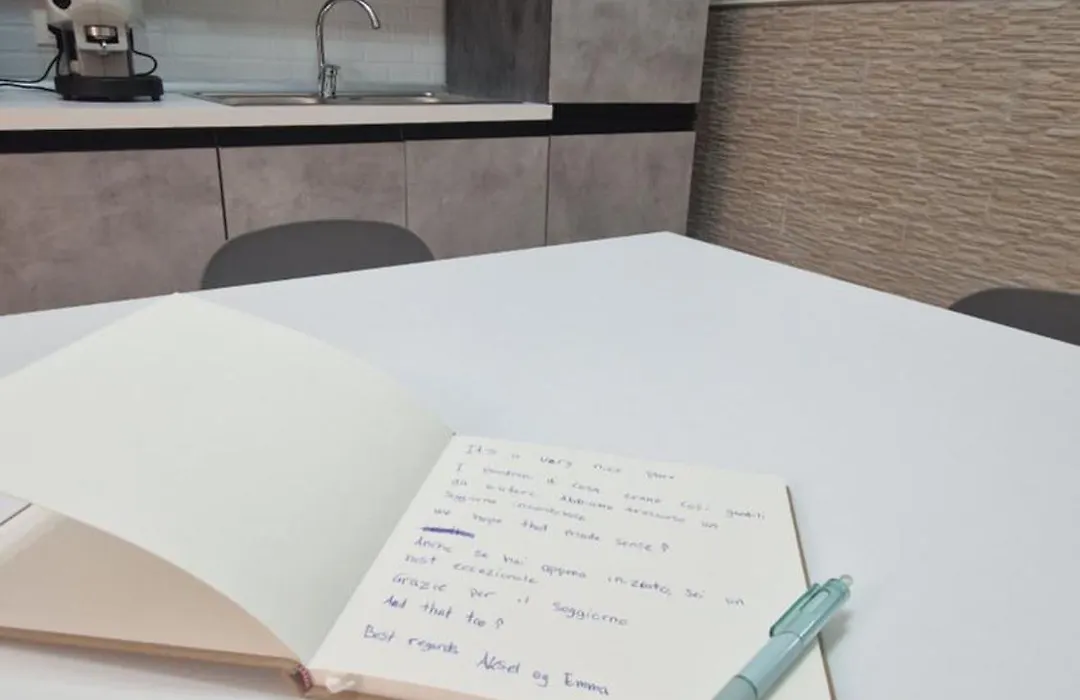 It's a very nice
I padroni di casa erano così gentili
da aiutare. Abbiamo trascorso un
soggiorno incantevole
we hope that made sense?
Anche se hai appena iniziato, sei un
host eccezionale
Grazie per il soggiorno
And that too?
Best regards Aksel og Emma